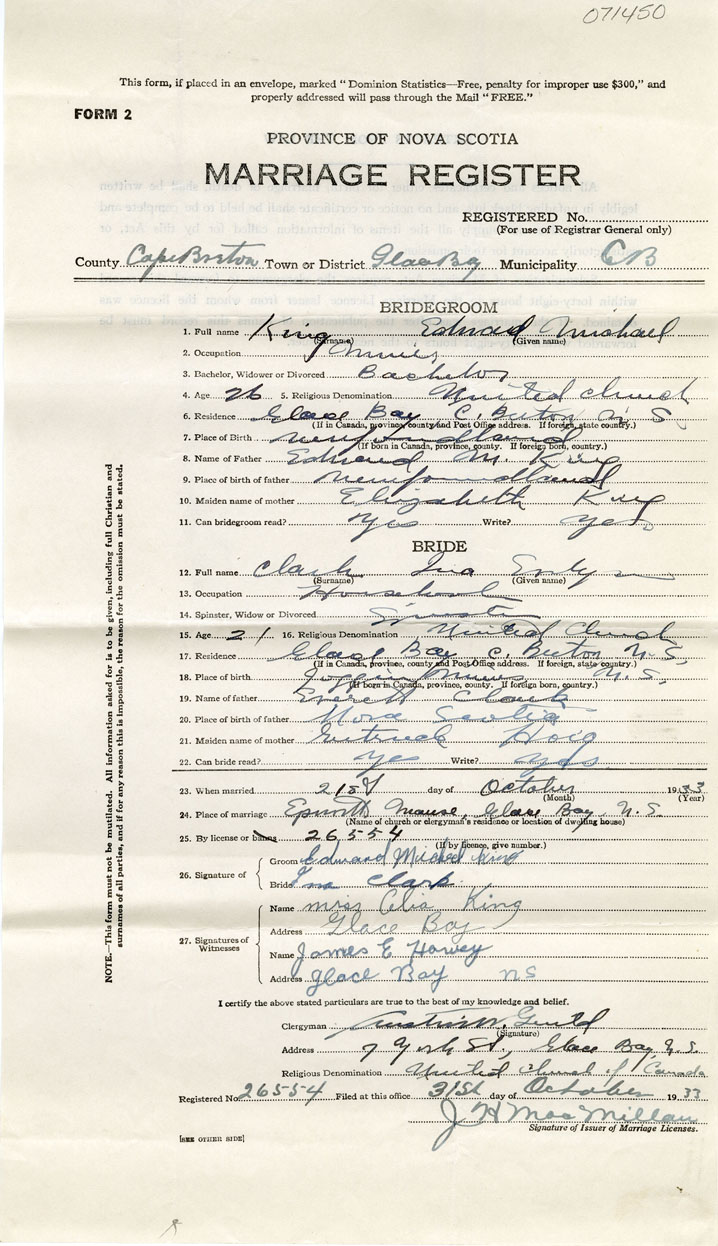 071450
This form, if placed in an envelope, marked "Dominion Statistics—Free, penalty for improper use $300," and
properly addressed will pass through the Mail "FREE."
FORM 2
PROVINCE OF NOVA SCOTIA
MARRIAGE REGISTER
REGISTERED No.
(For use of Registrar General only)
County Cape Breton Town or District Glace Bay Municipality CB
BRIDEGROOM
1. Full name King Edward Michael
(Surname) (Given name)
2. Occupation Miner
3. Bachelor, Widower or Divorced Bachelor
4. Age 26 5. Religious Denomination United Church
6. Residence Glace Bay C. Breton N. S.
(If in Canada, province, county and Post Office address. If foreign, state country.)
7. Place of Birth Newfoundland
(If born in Canada, province, county. If foreign born, country.)
8. Name of Father Edward M. King
9. Place of birth of father Newfoundland
10. Maiden name of mother Elizabeth King
11. Can bridegroom read? Yes Write? Yes
BRIDE
12. Full name Clark Ina
(Surname) (Given name)
13. Occupation Household
14. Spinster, Widow or Divorced Spinster
15. Age 21 16. Religious Denomination United Church
17. Residence Glace Bay C. Breton N. S.
(If in Canada, province, county and Post Office address. If foreign, state country.)
18. Place of birth Joggin Mines N. S.
(If born in Canada, province, county. If foreign born, country.)
19. Name of father Everett Clark
20. Place of birth of father Nova Scotia
21. Maiden name of mother Gertrude
22. Can bride read? Yes Write? Yes
23. When married 21st day of October 1933
(Month) (Year)
24. Place of marriage Epworth Manse, Glace Bay, N. S.
(Name of church or clergyman's residence or location of dwelling house)
25. By license or banns 26554
(If by licence, give number.)
26. Signature of Groom Edward Michael King
Bride Ina Clark
27. Signatures of Witnesses
Name Miss Celia King
Address Glace Bay
Name James E Harvey
Address Glace Bay NS
I certify the above stated particulars are true to the best of my knowledge and belief.
Clergyman
(Signature)
Address 7 York St., Glace Bay, N.S.
Religious Denomination United Church of Canada
Registered No. 26554 Filed at this office 31st day of October 1933
J H MacMillan
Signature of Issuer of Marriage Licenses.
[SEE OTHER SIDE]
NOTE.—This form must not be mutilated. All information asked for is to be given, including full Christian and
surnames of all parties, and if for any reason this is impossible, the reason for the omission must be stated.